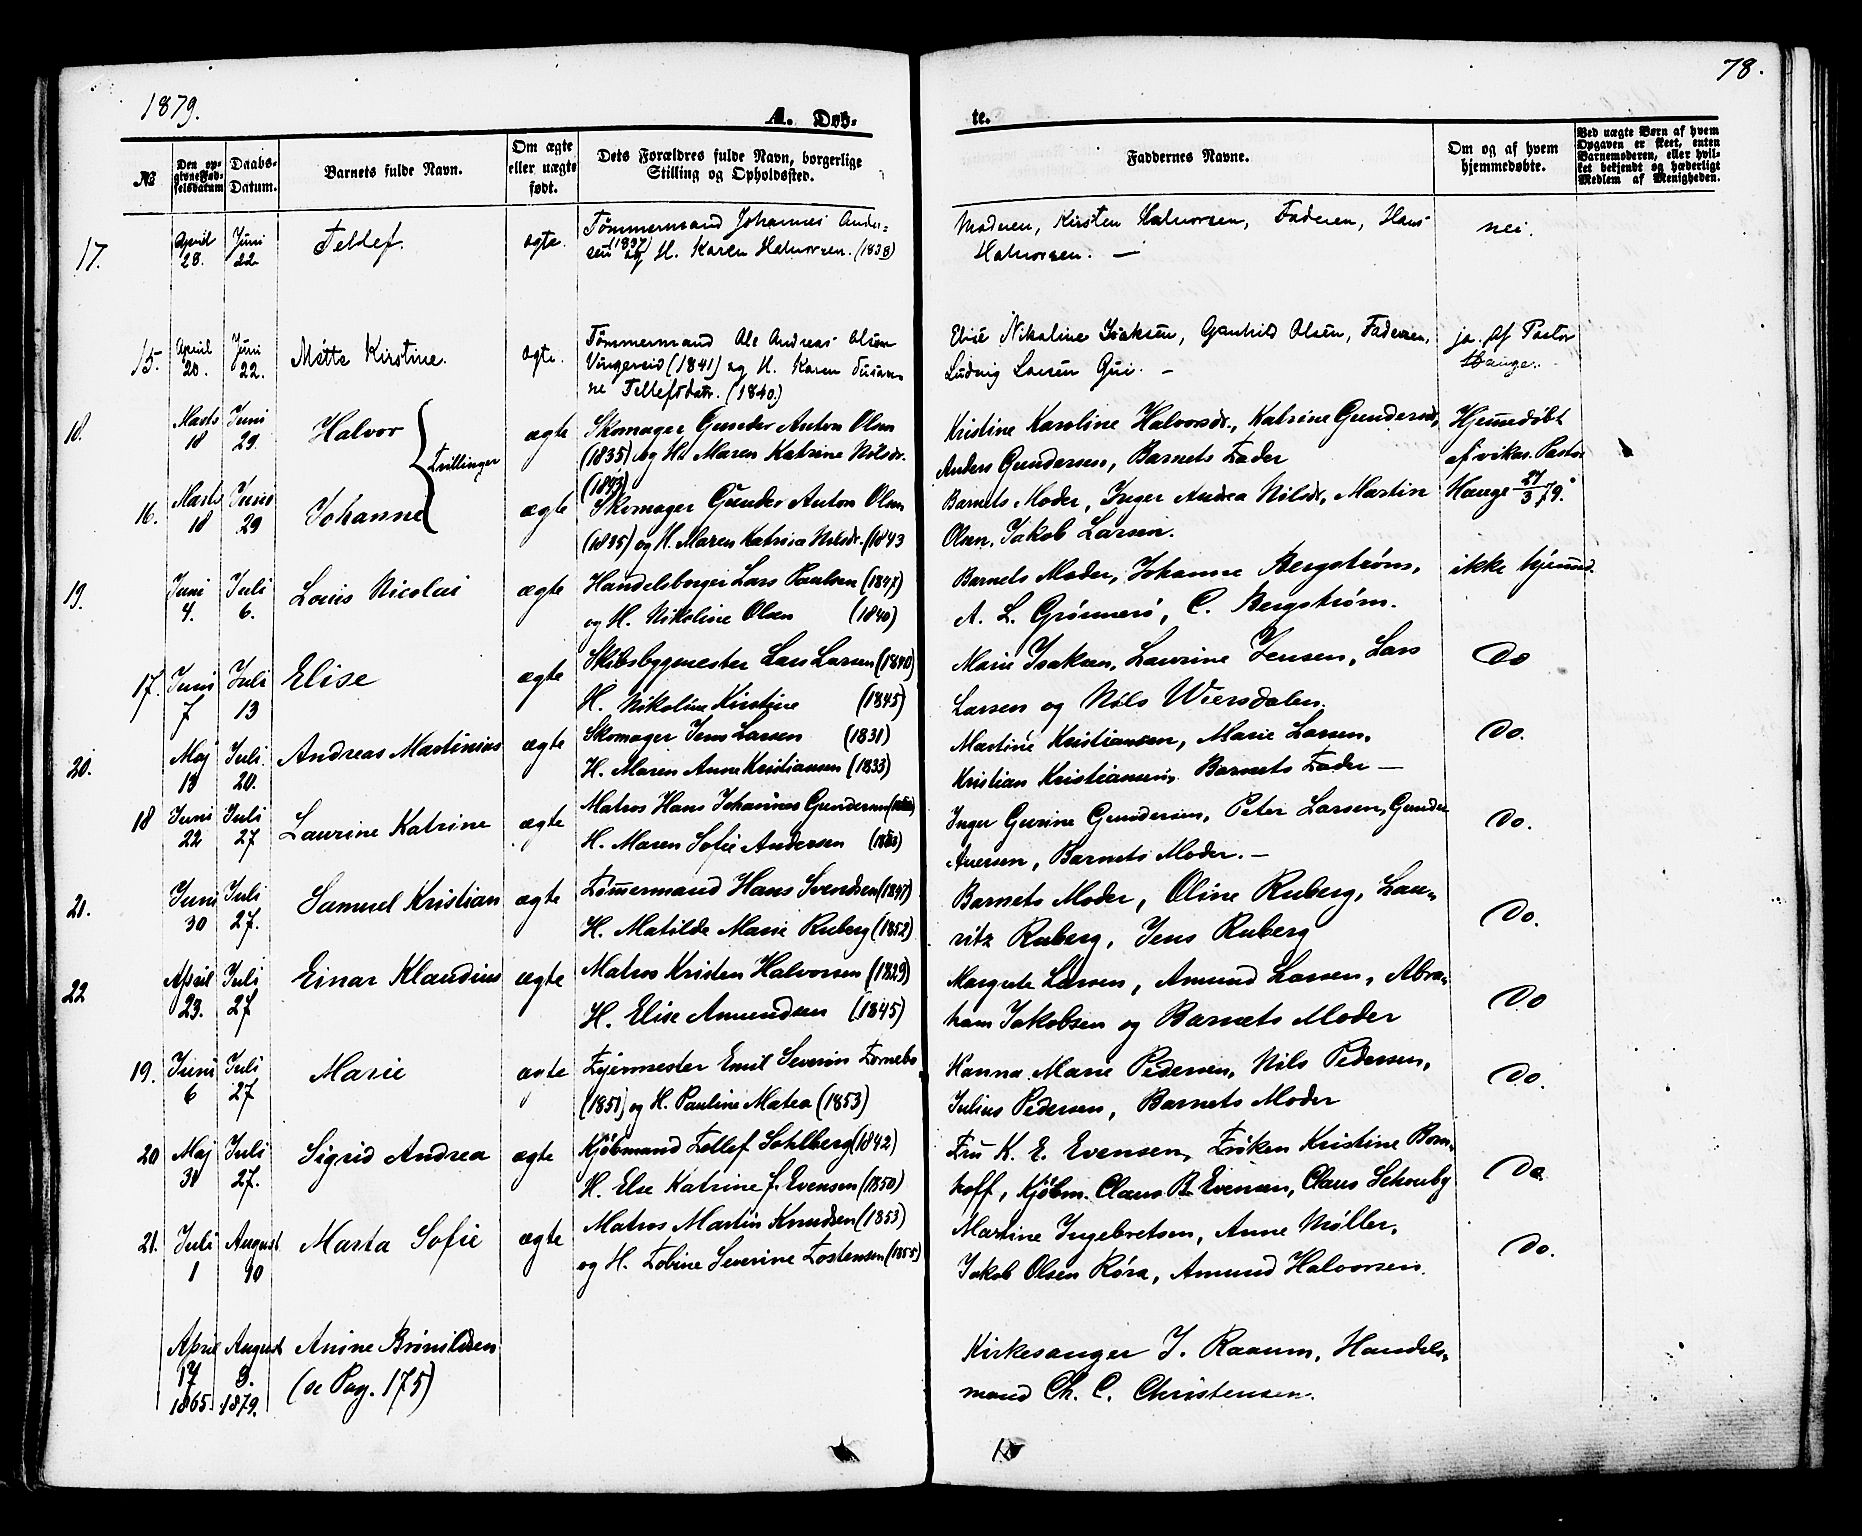 1879.
78.
A. Døb-
te.
No
Den op-
givne Fød-
selsdatum
Daabs-
Datum.
Barnets fulde Navn.
Om ægte
eller uægte
født.
Dets Forældres fulde Navn, borgerlige
Stilling og Opholdssted.
Faddernes Navne.
Om og af hvem
hjemmedøbte.
Ved uægte Børn af hvem
Opgaven er skeet, enten
Barnemoderen, eller hvil-
ket bekjendt og hæderligt
Medlem af Menigheden.
17. April 28. Juni 22 Tellef. ægte. Tømmermand Johannes Ander-
sen (1837) og H. Karen Halvorsen. (1838)
Moderen, Kirsten Halvorsen, Faderen, Hans
Halvorsen. — nei.
15. April 20. Juni 22. Mette Kirstine. ægte. Tømmermand Ole Andreas Olsen
Vingereid (1841) og H. Karen Susan-
ne Tellefsdatr. (1840.)
Elise Nikoline Isaksen, Gunhild Olsen, Faderen,
Ludvig Larsen Gui. —
ja. af Pastor
Hauge.
18. Marts 18 Juni 29. Halvor Tvillinger ægte Skomager Gunder Anton Olsen
(1835) og H. Maren Katrine Nilsdr.
(1843)
Kristine Karoline Halvorsdr., Katrine Gundersdr,
Anders Gundersen, Barnets Fader
Hjemmedøbt
af vikar. Pastor
Hauge 27/3 79.
16. Marts 18 Juni 29 Johanne ægte Skomager Gunder Anton Olsen
(1835) og H. Maren Katrine Nilsdr. (1843
Barnets Moder, Inger Andrea Nilsdr, Martin
Olsen, Jakob Larsen.
19. Juni 4. Juli 6. Louis Nicolai ægte Handelsborger Lars Paulsen (1848)
og H. Nikoline Olsen (1840)
Barnets Moder, Johanne Bergstrøm,
A. L. Grønnerö, C. Bergstrøm.
ikke hjemmed.
17. Juni 7 Juli 13 Elise ægte Skibsbygmester Lars Larsen (1840)
H. Nikoline Kirstine (1845)
Marie Isaksen, Laurine Jensen, Lars
Larsen og Nils Wiersdalen.
Do
20. Maj 13 Juli 20. Andreas Martinius ægte Skomager Jens Larsen (1831)
H. Maren Anne Kristiansen (1833)
Martine Kristiansen, Marie Larsen,
Kristian Kristiansen, Barnets Fader —
Do.
18 Juni 22 Juli 27 Laurine Katrine ægte Matros Hans Johannes Gundersen
H. Maren Sofie Andersen
Inger Gurine Gundersen, Peter Larsen, Gunder
Aversen, Barnets Moder. —
Do.
21. Juni 30 Juli 27. Samuel Kristian ægte Tømmermand Hans Svendsen (1847)
H. Matilde Marie Ruberg (1852)
Barnets Moder, Oline Ruberg, Lau-
ritz Ruberg, Jens Ruberg
Do.
22 April 23. Juli 27 Einar Klaudius ægte Matros Kristen Halvorsen (1829)
H. Elise Amundsen (1845)
Margrete Larsen, Amund Larsen, Abra-
ham Jakobsen og Barnets Moder
Do
19. Juni 6 Juli 27 Marie ægte Fyrmester Emil Severin Tornebo
(1851) og H. Pauline Matea (1853)
Hanna Marie Pedersen, Nils Pedersen,
Julius Pedersen, Barnets Moder
Do.
20 Maj 31 Juli 27. Sigrid Andrea ægte Kjøbmand Tellef Sohlberg (1842)
H. Else Katrine f. Evensen (1850)
Fru K. E. Evensen, Frøken Kristine Born-
hoff, Kjøbm. Claus B. Evensen, Claus Schouby
Do.
21. Juli 1 August 10 Marta Sofie ægte Matros Martin Knudsen (1853)
og H. Tobine Severine Tostensen (1855)
Martine Ingebretsen, Anne Møller,
Jakob Olsen Røra, Amund Halvorsen.
Do.
April 17 1865 August 3. 1879. Anine Brønildsen
(se Pag. 175)
Kirkesanger J. Raaum, Handels-
mand Ch. C. Christensen.